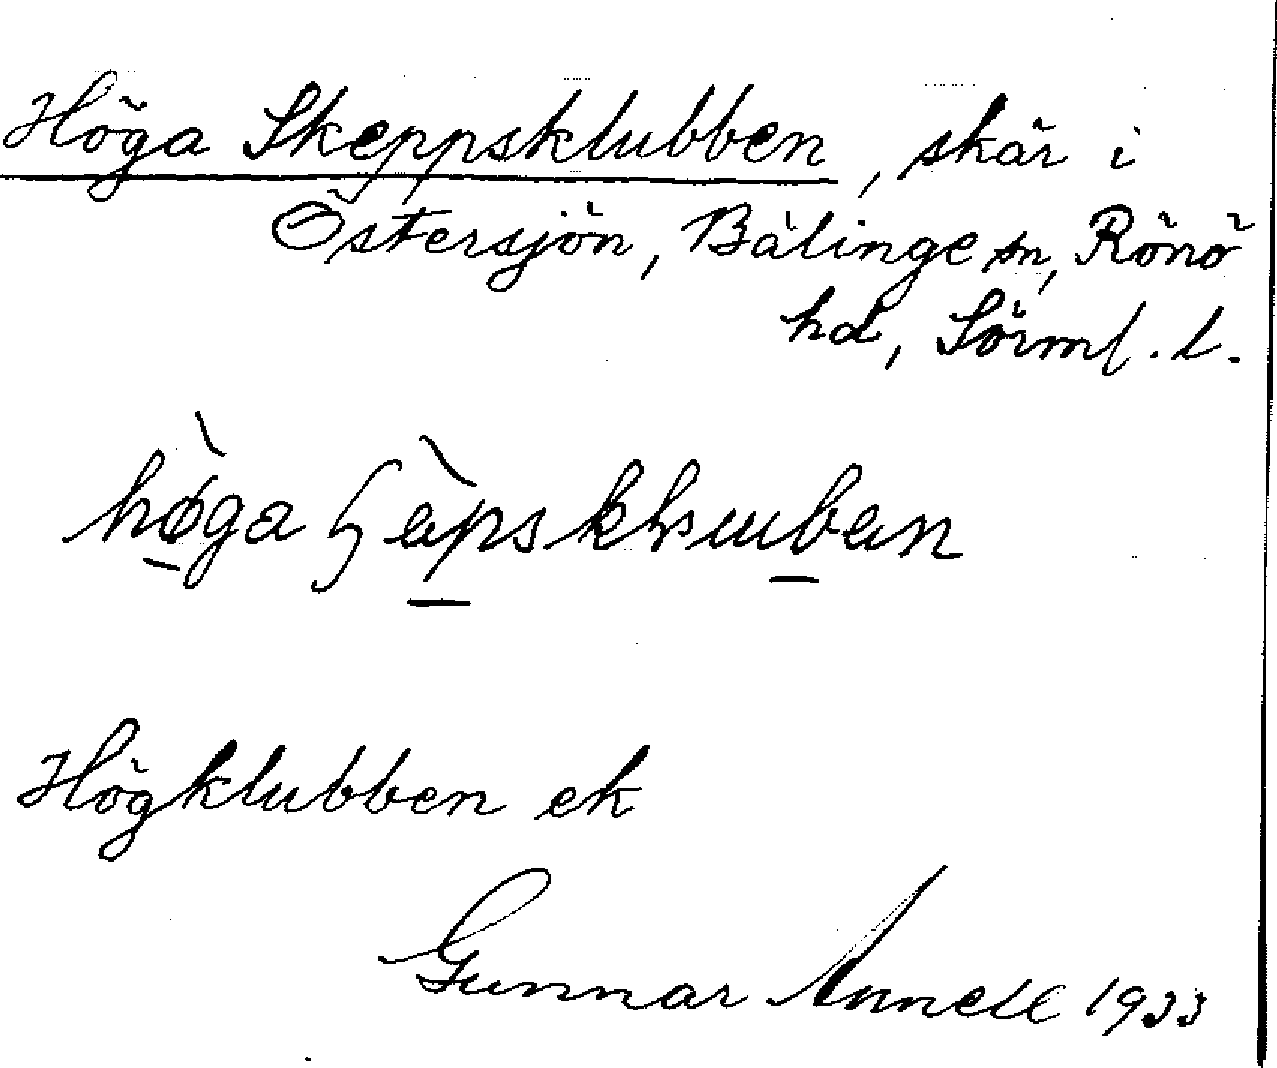 Höga Skeppsklubben, skär i
Östersjön, Bälinge sn, Rönö
hd, Sörml. l.
höga
Högklubben ek
Gunnar Annell 1933